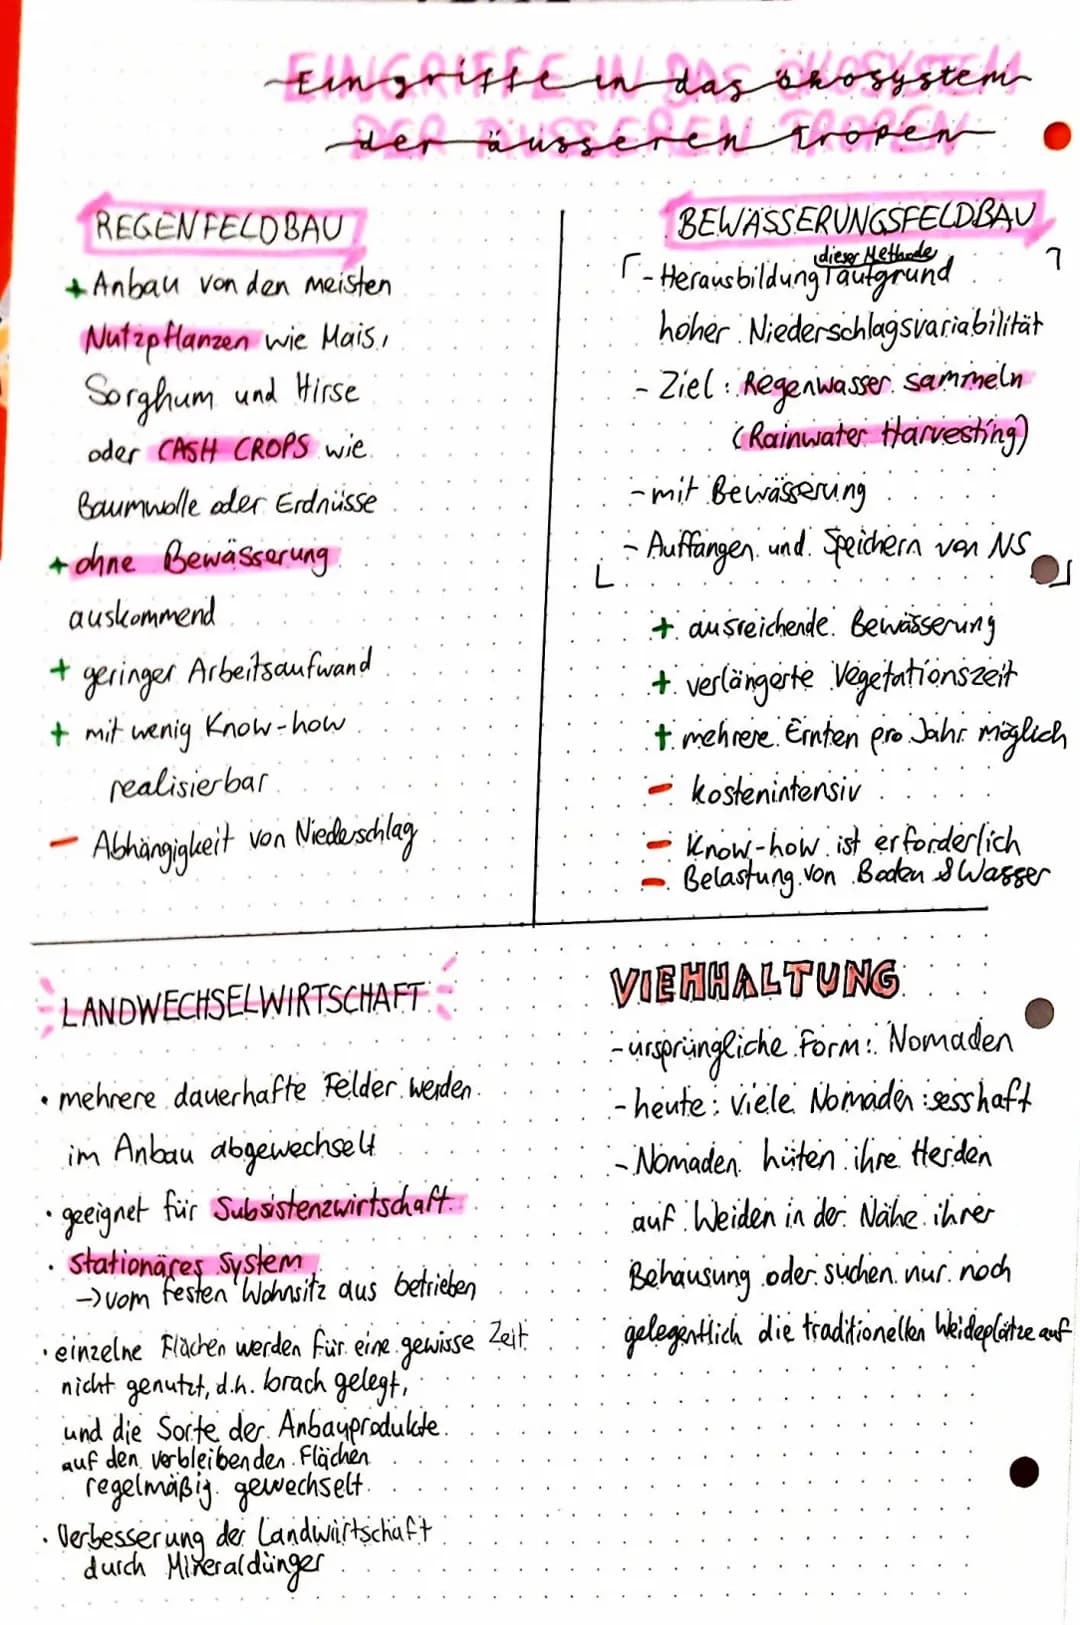 Eingriffe in das ökosystem
der äusseren Tropen
REGENFELDBAU
+ Anbau von den meisten
Nutzpflanzen wie Mais,
Sorghum und Hirse
oder CASH CROPS wie
Baumwolle oder Erdnüsse
+ ohne Bewässerung
auskommend
+ geringer Arbeitsaufwand
+ mit wenig Know-how
realisierbar
- Abhängigkeit von Niederschlag
BEWÄSSERUNGSFELDBAU
dieser Methode
- Herausbildung aufgrund
hoher Niederschlagsvariabilität
- Ziel: Regenwasser sammeln
(Rainwater Harvesting)
- mit Bewässerung
- Auffangen und Speichern von NS
+ ausreichende Bewässerung
+ verlängerte Vegetationszeit
+ mehrere Ernten pro Jahr möglich
- kostenintensiv
- Know-how ist erforderlich
- Belastung von Boden & Wasser
LANDWECHSELWIRTSCHAFT
• mehrere dauerhafte Felder werden
im Anbau abgewechselt
• geeignet für Subsistenzwirtschaft
• stationäres System
-> vom festen Wohnsitz aus betrieben
• einzelne Flächen werden für eine gewisse Zeit
nicht genutzt, d.h. brach gelegt,
und die Sorte der Anbauprodukte
auf den verbleibenden Flächen
regelmäßig gewechselt
• Verbesserung der Landwirtschaft
durch Mineraldünger
VIEHHALTUNG
- ursprüngliche Form: Nomaden
- heute: viele Nomaden sesshaft
- Nomaden hüten ihre Herden
auf Weiden in der Nähe ihrer
Behausung oder suchen nur noch
gelegentlich die traditionellen Weideplätze auf